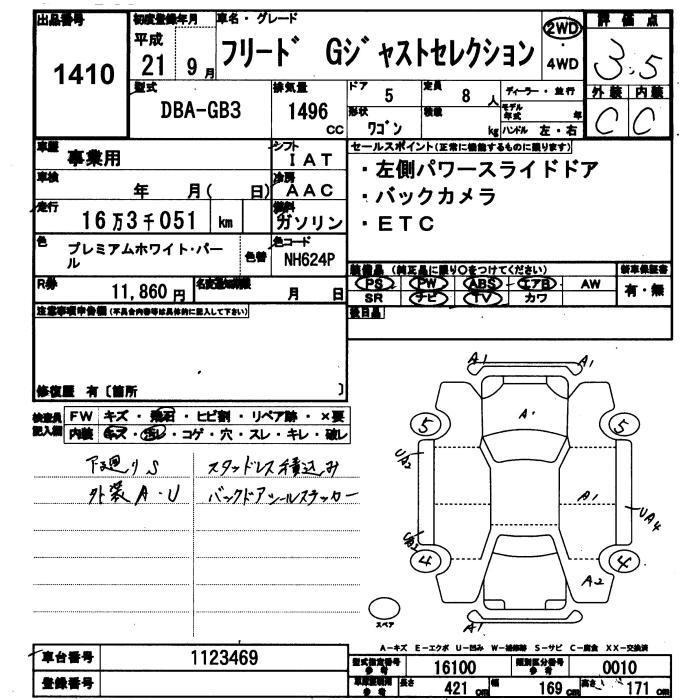 出品番号
1410
初度登録年月
平成
21年 9月
車名・グレード
フリード Gジャストセレクション
2WD
・
4WD
評価点
3.5
外装 内装
C C
型式
DBA-GB3
排気量
1496
CC
ドア
5
定員
8人
ディーラー・並行
形状
ワゴン
積載
kg
モデル年式 年
ハンドル 左・右
車歴
事業用
シフト
IAT
車検
年 月( 日)
冷房
AAC
走行
16万3千051 km
燃料
ガソリン
色
プレミアムホワイト・パール
色替
色コード
NH624P
R券
11,860 円
名変通知期限
月 日
セールスポイント(正常に機能するものに限ります)
・左側パワースライドドア
・バックカメラ
・ETC
装備品 (純正品に限り○をつけてください)
PS PW ABS エアB AW
SR ナビ TV カワ
新車保証書
有・無
後日品
注意事項申告欄(不具合内容等は具体的に記入して下さい)
修復歴 有〔箇所 〕
検査員
記入欄
FW キズ・飛石・ヒビ割・リペア跡・×要
内装 キズ・汚レ・コゲ・穴・スレ・キレ・破レ
下廻りS
外装A・U
スタッドレス積込み
バックドアシールステッカー
A1 A1
A1
5 5
UA2
A1
UA4
UA2
4 4
A2
A1
スペア
A−キズ E−エクボ U−凹み W−補修跡 S−サビ C−腐食 XX−交換済
車台番号
1123469
登録番号
型式指定番号
参考
16100
類別区分番号
参考
0010
車庫証明用
参考
長さ
421 cm
幅
169 cm
高さ
171 cm